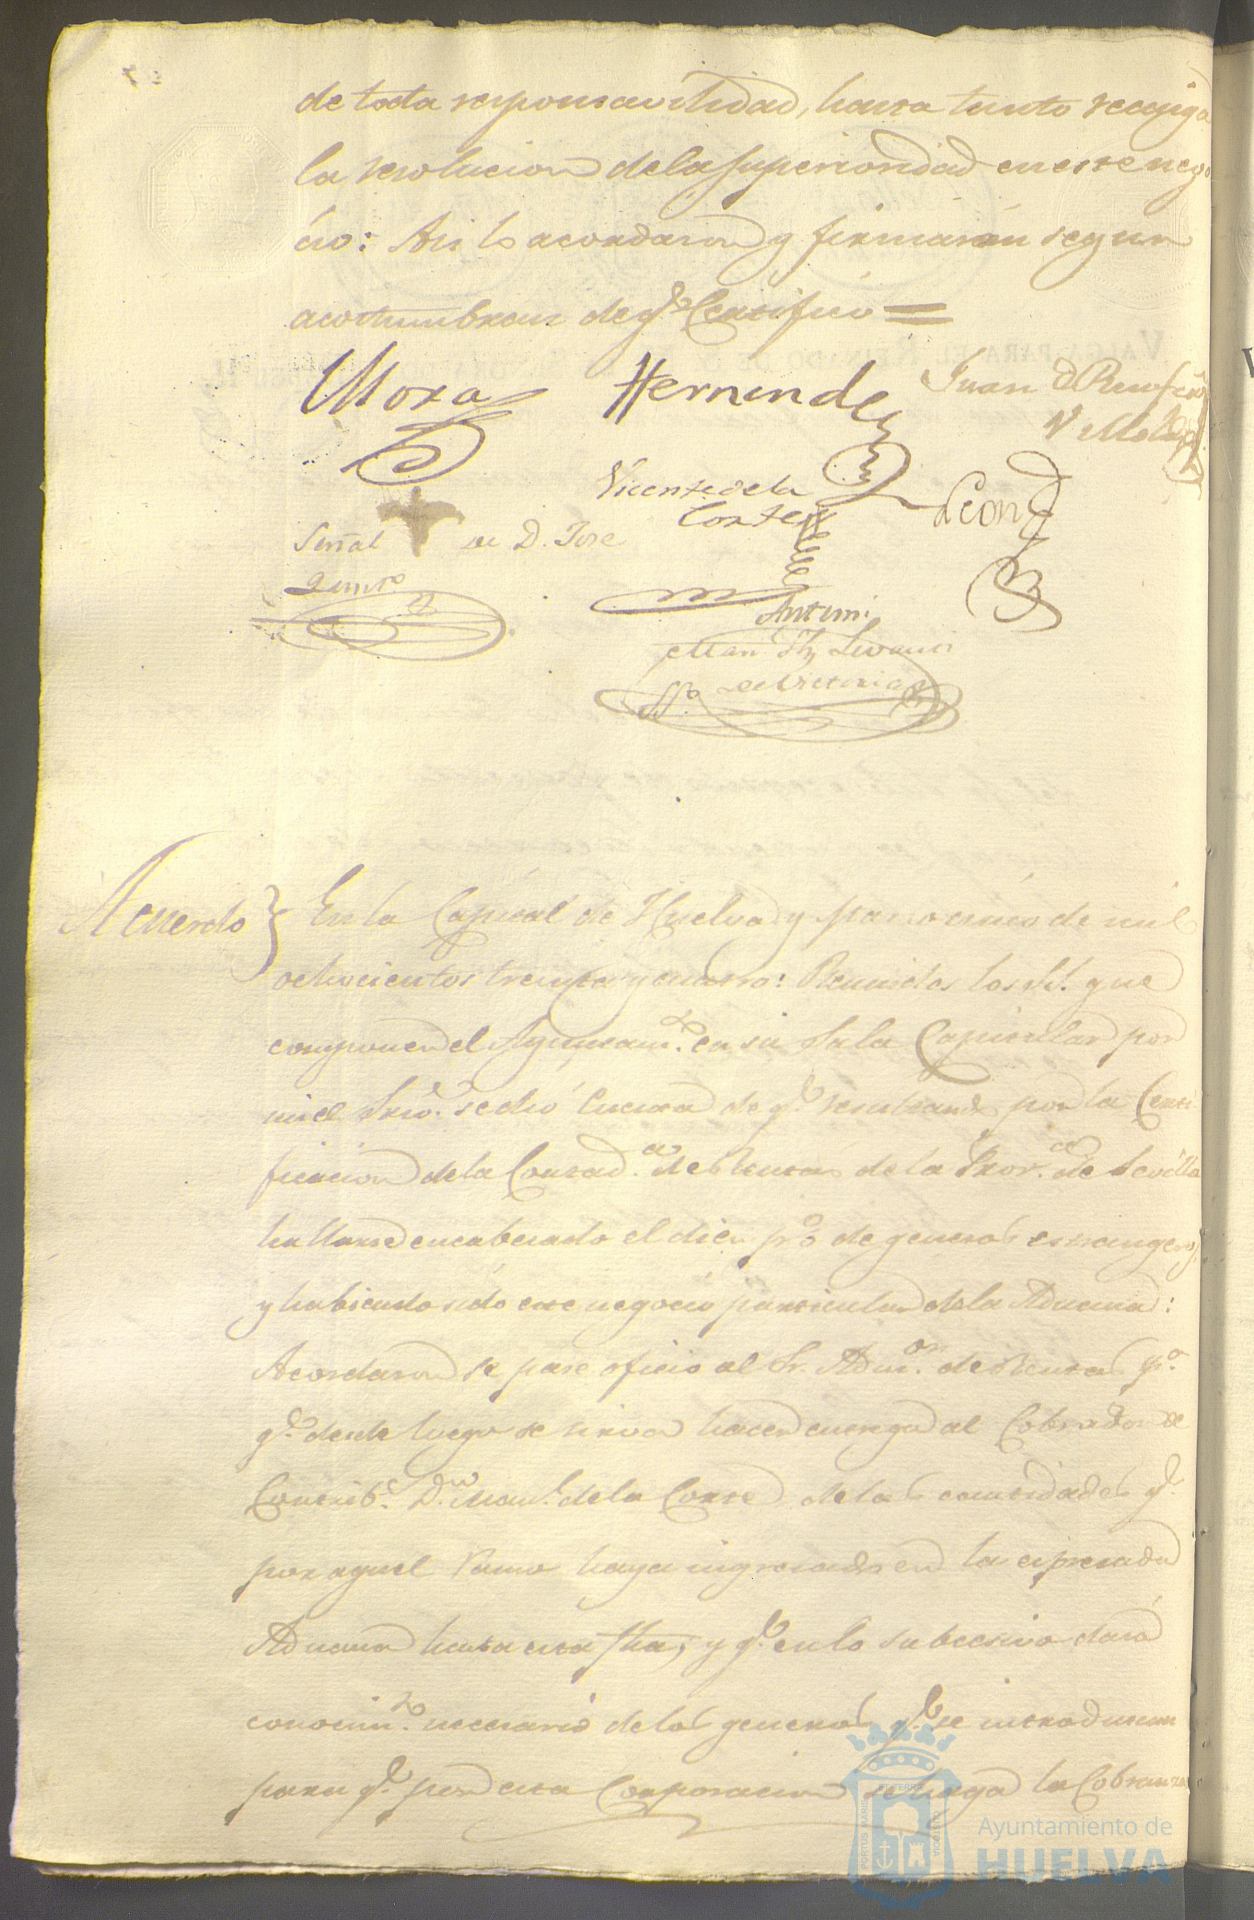 de toda responsavilidad, hasta tanto recaiga
la resolucion de la Superioridad en este nego
cio: Asi lo acordaron y firmaran segun
acostumbran de q.e Certifico =
Mora Hernandez Juan
Vicente de la
Corte
Leon
Señal de D. Jose
Quint.o
Antemi
Man.
de Victoria
SS.o
Acuerdo } En la Capital de Huelva y marzo de mil
ochocientos treinta y cuatro: Reunidos los SS. que
componen el Ayuntam.to en su Sala Capitular por
mi el Srio. se dió Cuenta de q.e resultando por la Certi
ficacion de la Contad.a de Rentas de la Prov.a de Sevilla
hallarse encabezado el diez p.o de generos estrangeros,
y habiendo sido este negocio particular de la Aduana:
Acordaron se pase oficio al Sr. Adm.or de Rentas p.a
q.e desde luego se sirva hacer entrega al Cobrador de
Contrib.s D.n Man.l de la Corte de las cantidades q.e
por aquel ramo haya ingresado en la espresada
Aduana hasta esta fha, y q.e en lo subcesivo dará
conocim.to necesario de los generos q.e se introduzcan
para q.e por esta Corporacion se haga la Cobranza
PORTUS MARIS ET TERRE CUSTODIA
Ayuntamiento de
HUELVA